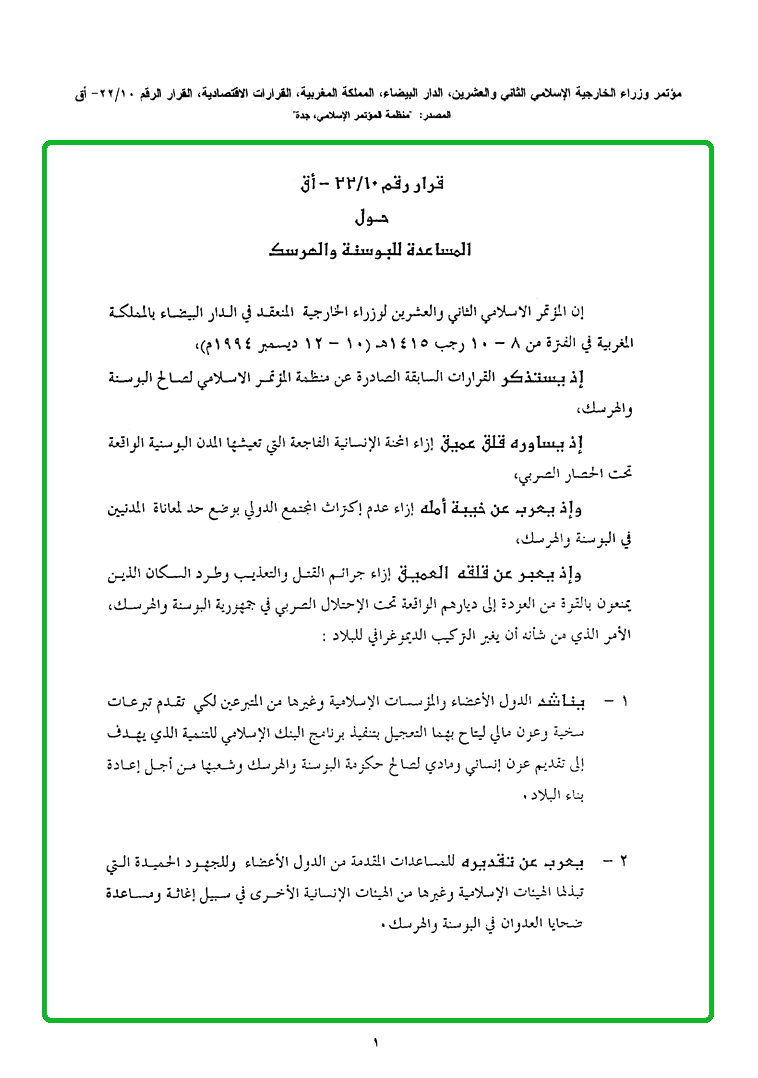 مؤتمر وزراء الخارجية الإسلامي الثاني والعشرين، الدار البيضاء، المملكة المغربية، القرارات الاقتصادية، القرار الرقم ٢٢/١٠- أق
المصدر: "منظمة المؤتمر الإسلامي، جدة"
قرار رقم ٢٢/١٠ – أق
حول
المساعدة للبوسنة والهرسك
إن المؤتمر الاسلامي الثاني والعشرين لوزراء الخارجية المنعقد في الدار البيضاء بالمملكة
المغربية في الفترة من ٨ – ١٠ رجب ١٤١٥هـ (١٠ – ١٢ ديسمبر ١٩٩٤م)،
إذ يستذكر القرارات السابقة الصادرة عن منظمة المؤتمر الاسلامي لصالح البوسنة
والهرسك،
إذ يساوره قلق عميق إزاء المحنة الإنسانية الفاجعة التي تعيشها المدن البوسنية الواقعة
تحت الحصار الصربي،
وإذ يعرب عن خيبة أمله إزاء عدم إكتراث المجتمع الدولي بوضع حد لمعاناة المدنيين
في البوسنة والهرسك،
وإذ يعبر عن قلقه العميق إزاء جرائم القتل والتعذيب وطرد السكان الذين
يمنعون بالقوة من العودة إلى ديارهم الواقعة تحت الإحتلال الصربي في جمهورية البوسنة والهرسك،
الأمر الذي من شأنه أن يغير التركيب الديموغرافي للبلاد :
١ – يناشد الدول الأعضاء والمؤسسات الإسلامية وغيرها من المتبرعين لكي تقدم تبرعات
سخية وعون مالي ليتاح بهما التعجيل بتنفيذ برنامج البنك الإسلامي للتنمية الذي يهدف
إلى تقديم عون إنساني ومادي لصالح حكومة البوسنة والهرسك وشعبها من أجل إعادة
بناء البلاد.
٢ – يعرب عن تقديره للمساعدات المقدمة من الدول الأعضاء وللجهود الحميدة التي
تبذلها الهيئات الإسلامية وغيرها من الهيئات الإنسانية الأخرى في سبيل إغاثة ومساعدة
ضحايا العدوان في البوسنة والهرسك.
١